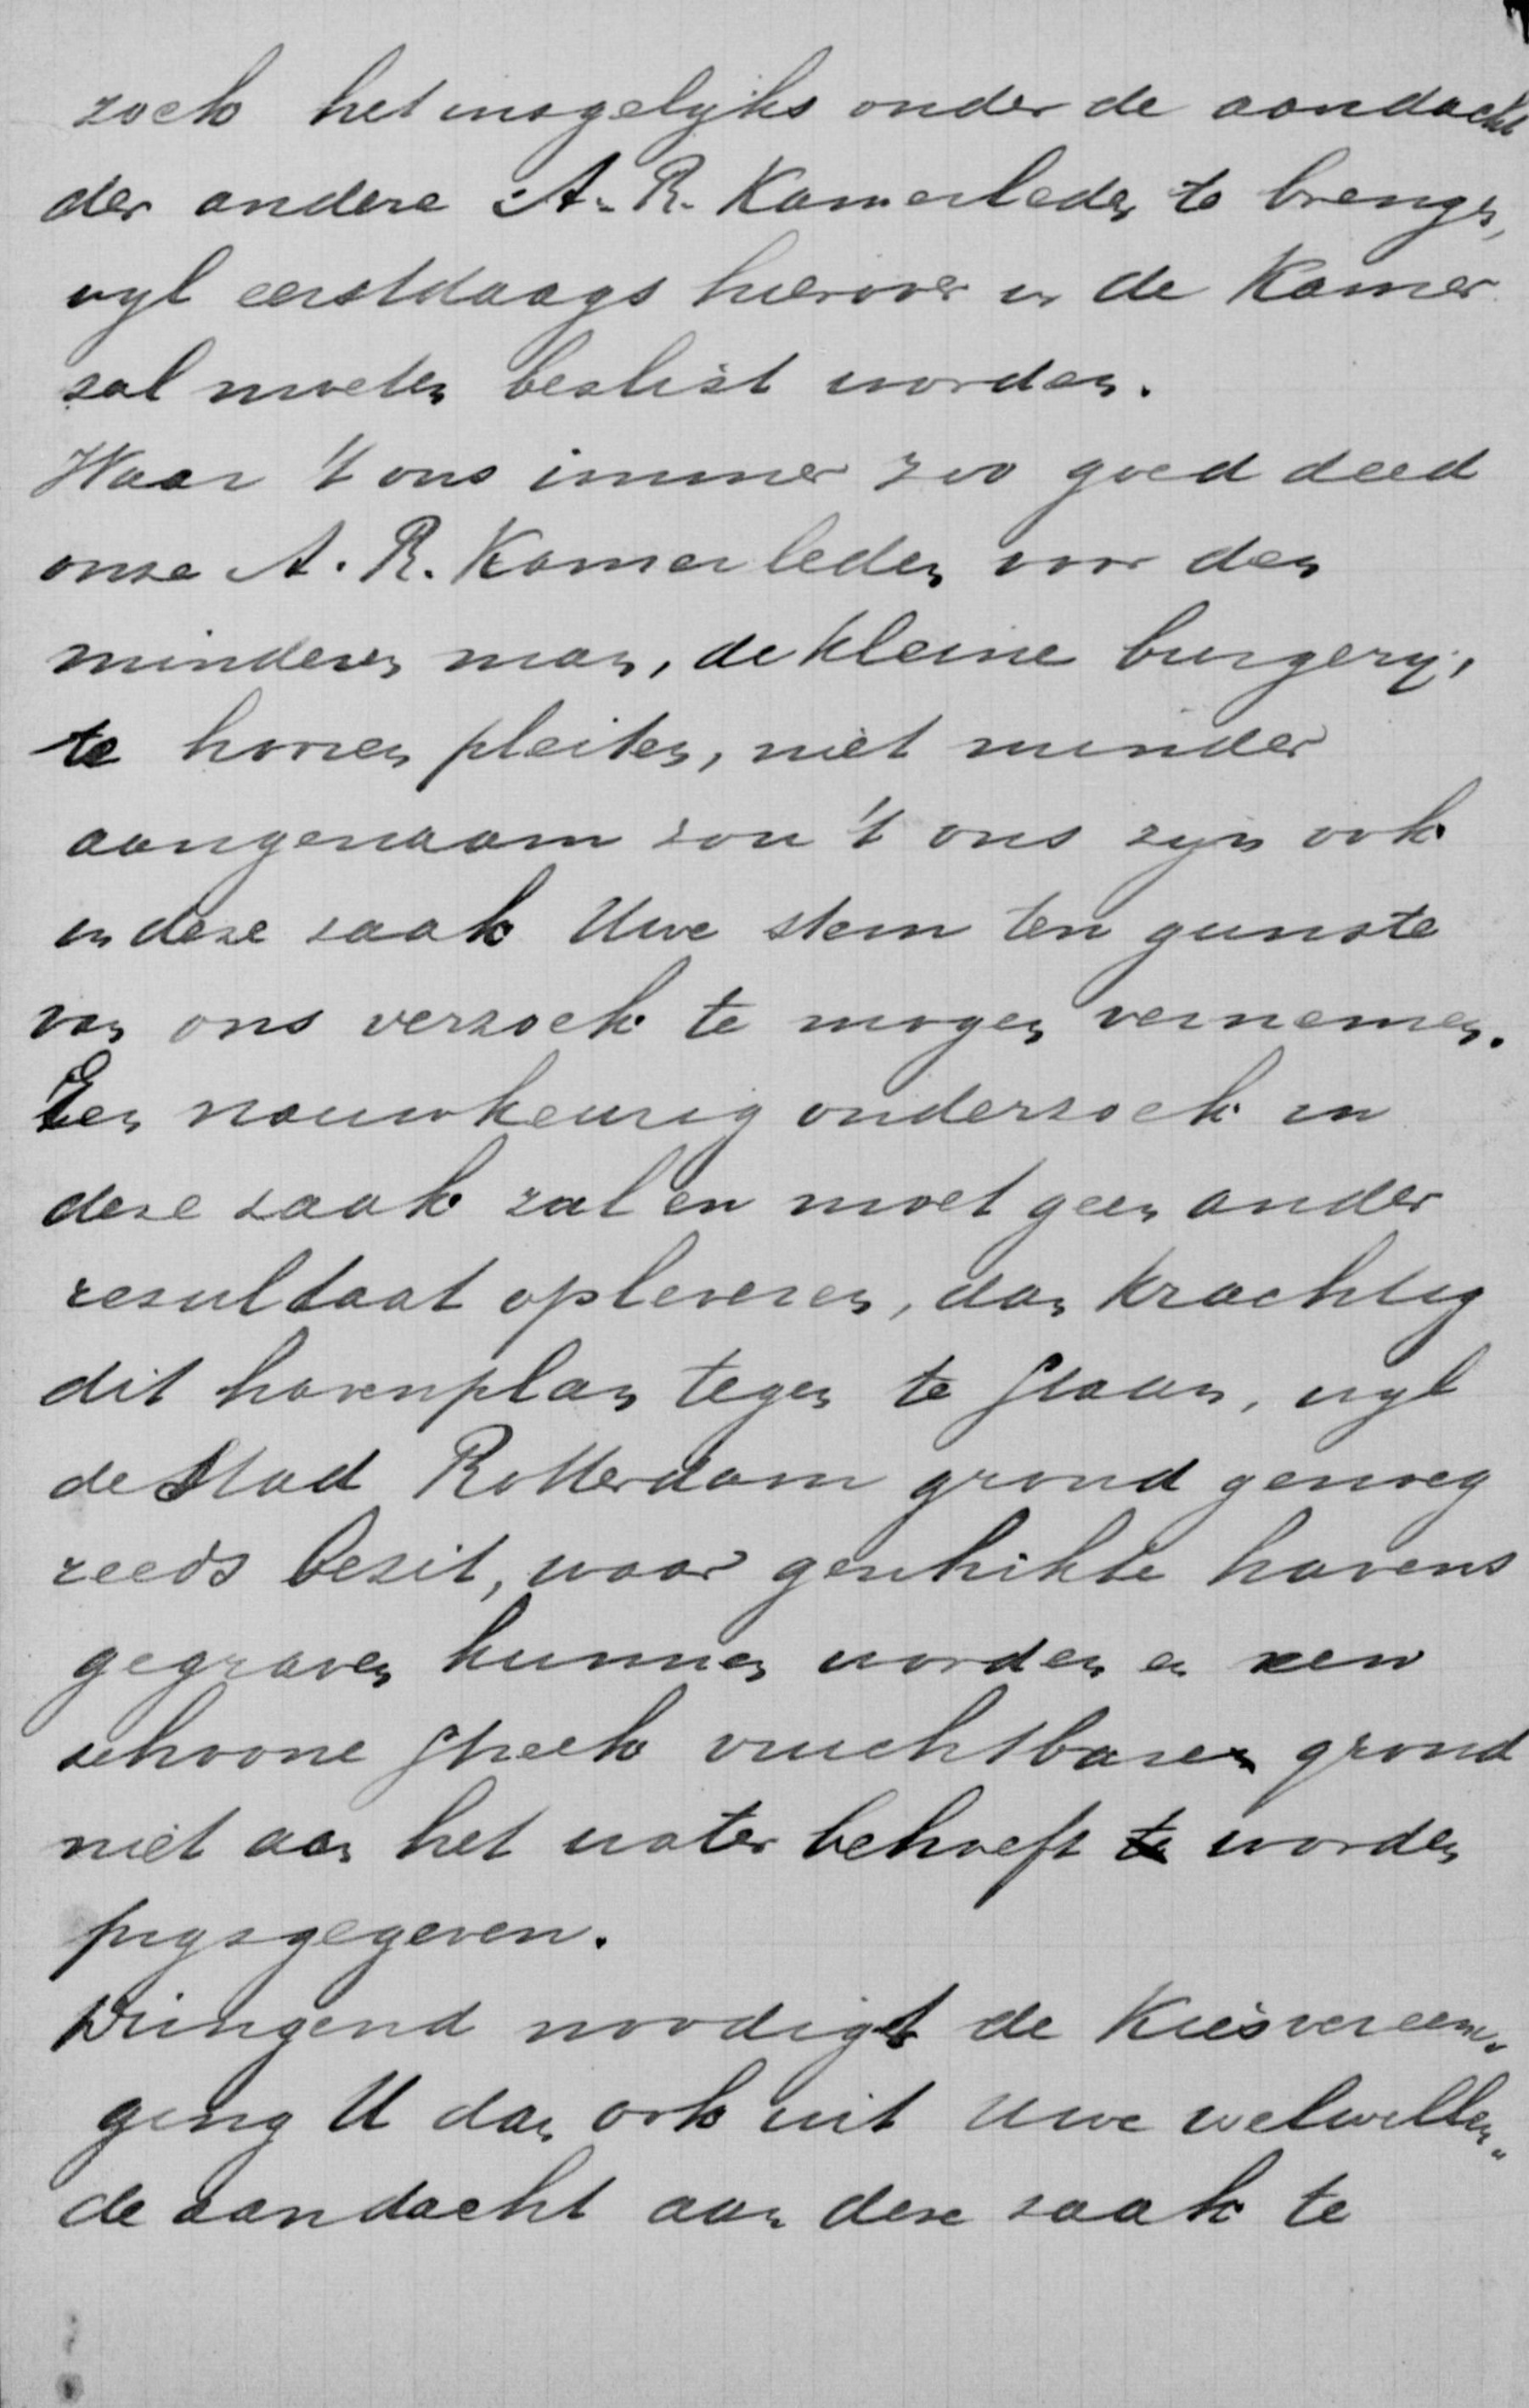 zoek het mogelijks onder de aandacht
der andere A. R. Kamerleden te brengen,
wyl eerstdaags hierover in de Kamer
zal moeten beslist worden.
Waar 't ons immer zoo goed deed
onze A. R. Kamerleden voor den
minderen man, de kleine burgery,
te hooren pleiten, niet minder
aangenaam zou 't ons zyn ook
in deze zaak Uwe stem ten gunste
van ons verzoek te mogen vernemen.
Een nauwkeurig onderzoek in
deze zaak zal en moet geen ander
resultaat opleveren, dan krachtig
dit havenplan tegen te staan, wyl
de Stad Rotterdam grond genoeg
reeds bezit, waar geschikte havens
gegraven kunnen worden en een
schoone streek vruchtbaren grond
niet aan het water behoeft te worden
prysgegeven.
Dringend noodigt de Kiesvereeni-
ging U dan ook uit Uwe welwillen-
de aandacht aan deze zaak te